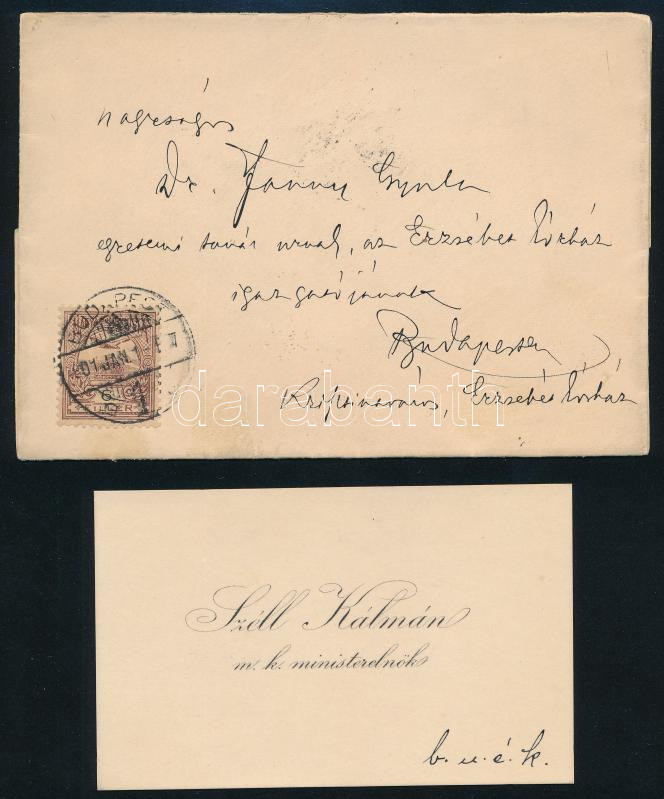 nagyságos
Dr. Janny Gyula
egyetemi tanár urnak, az Erzsébet Kórház
igazgatójának
Budapesten
Krisztinaváros, Erzsébet Kórház
BUDAPEST
901 JAN 1
6
FILLÉR
darabanth
Széll Kálmán
m. k. ministerelnök
b. u. é. k.